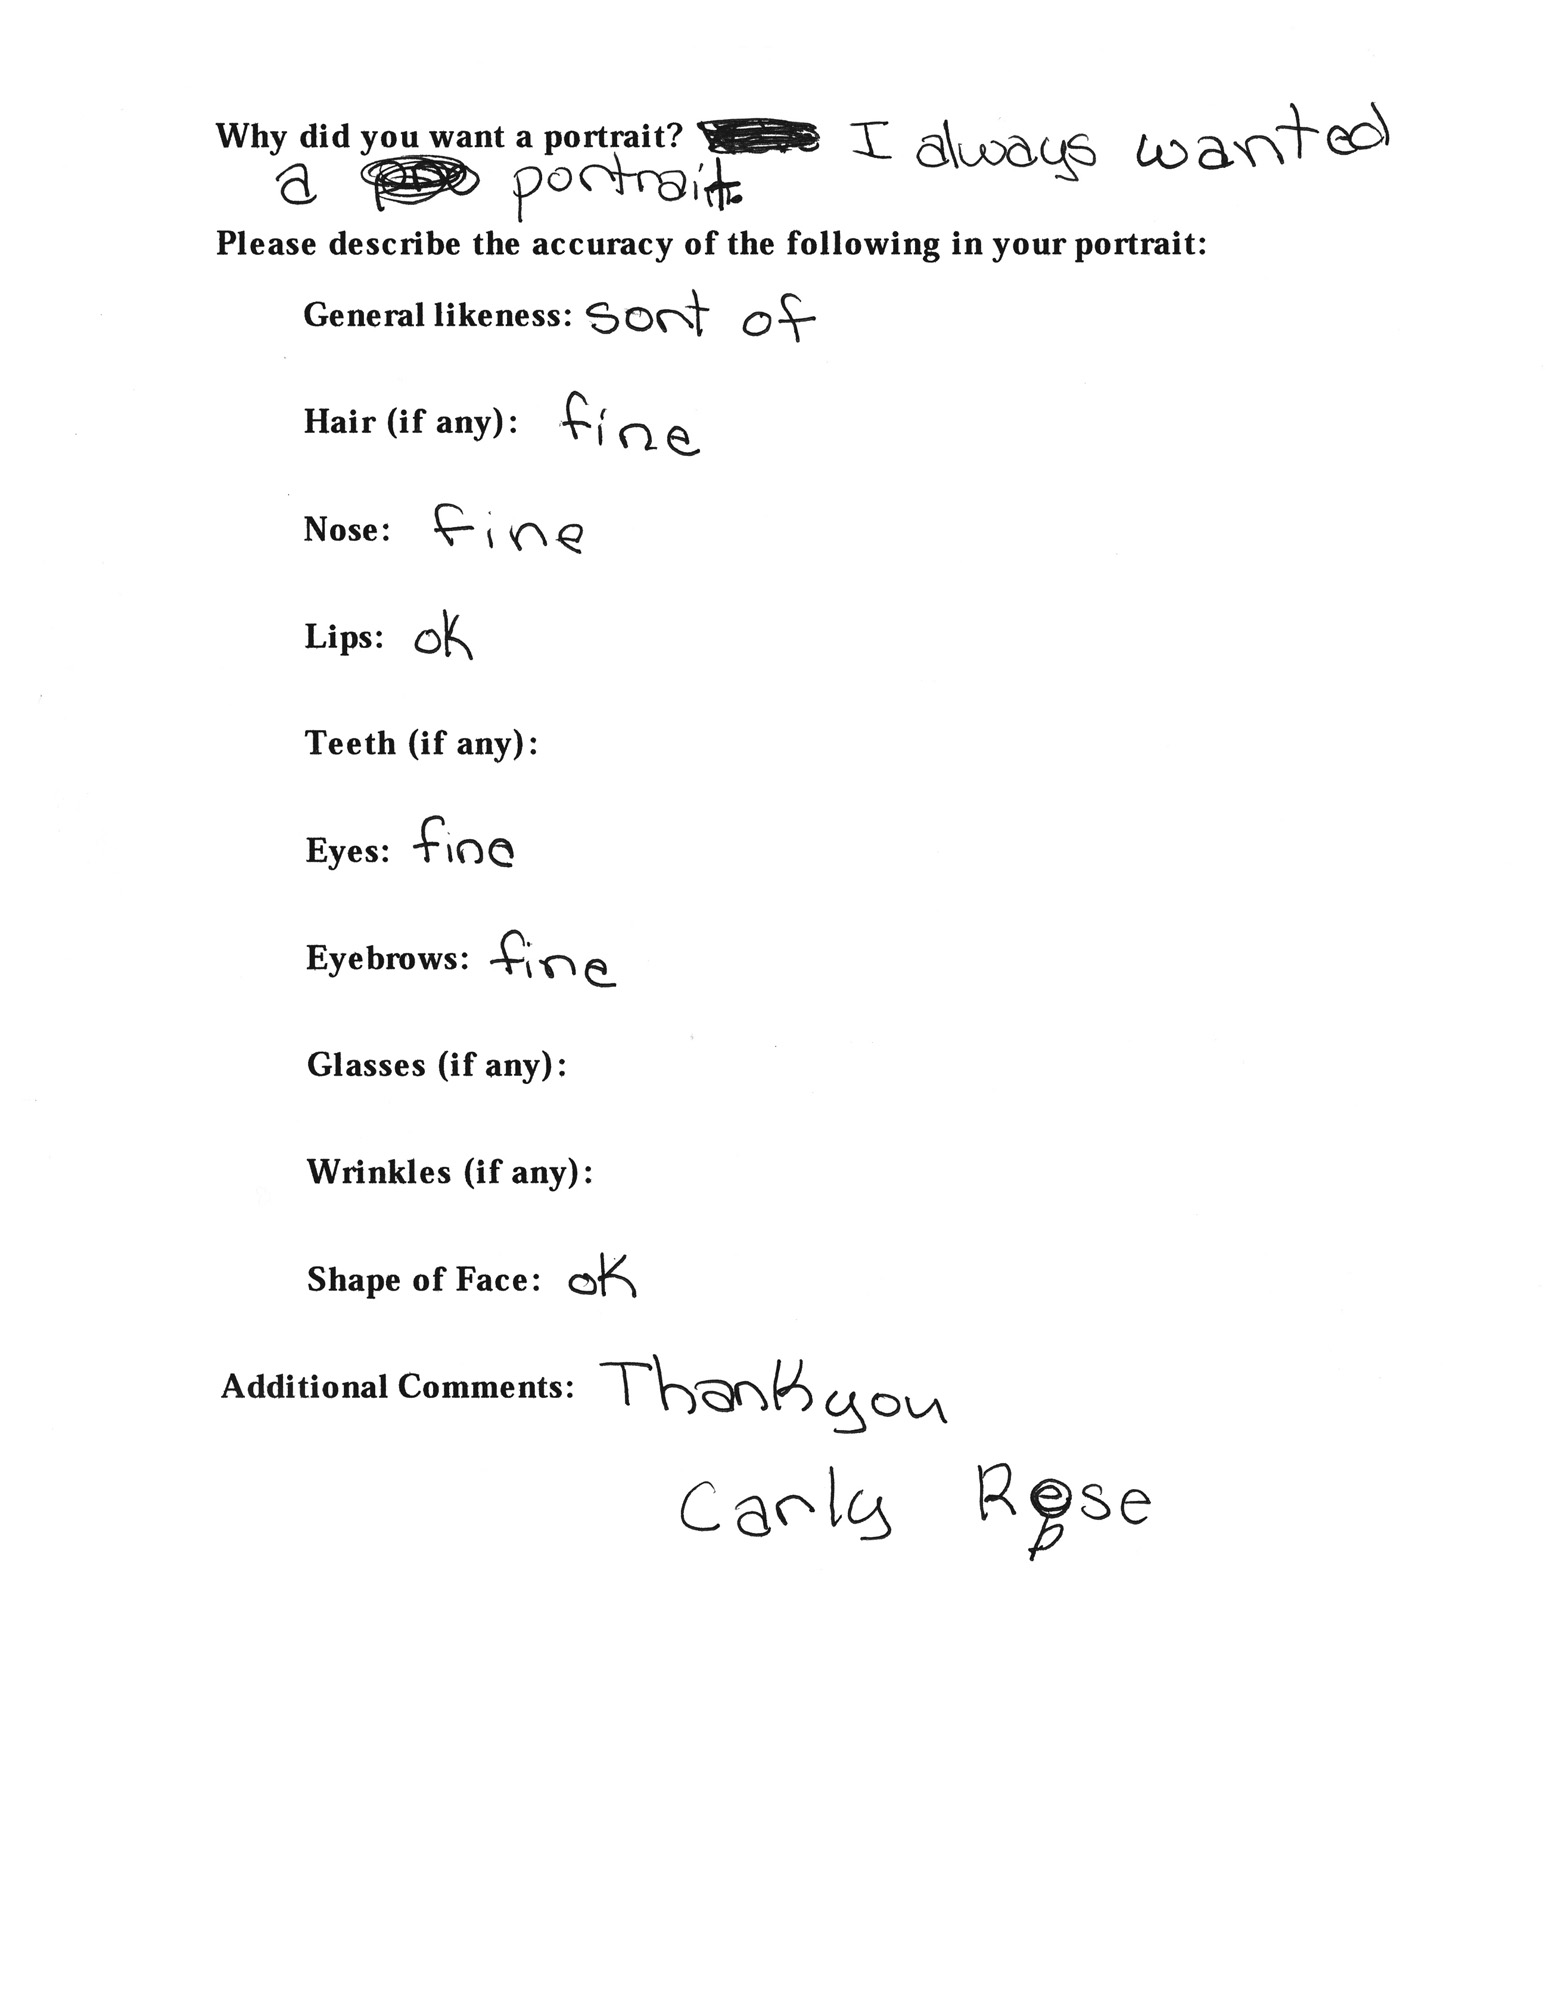 Why did you want a portrait? I always wanted
a portrait.
Please describe the accuracy of the following in your portrait:
General likeness: sort of
Hair (if any): fine
Nose: fine
Lips: ok
Teeth (if any):
Eyes: fine
Eyebrows: fine
Glasses (if any):
Wrinkles (if any):
Shape of Face: ok
Additional Comments: Thankyou
Carly Rose